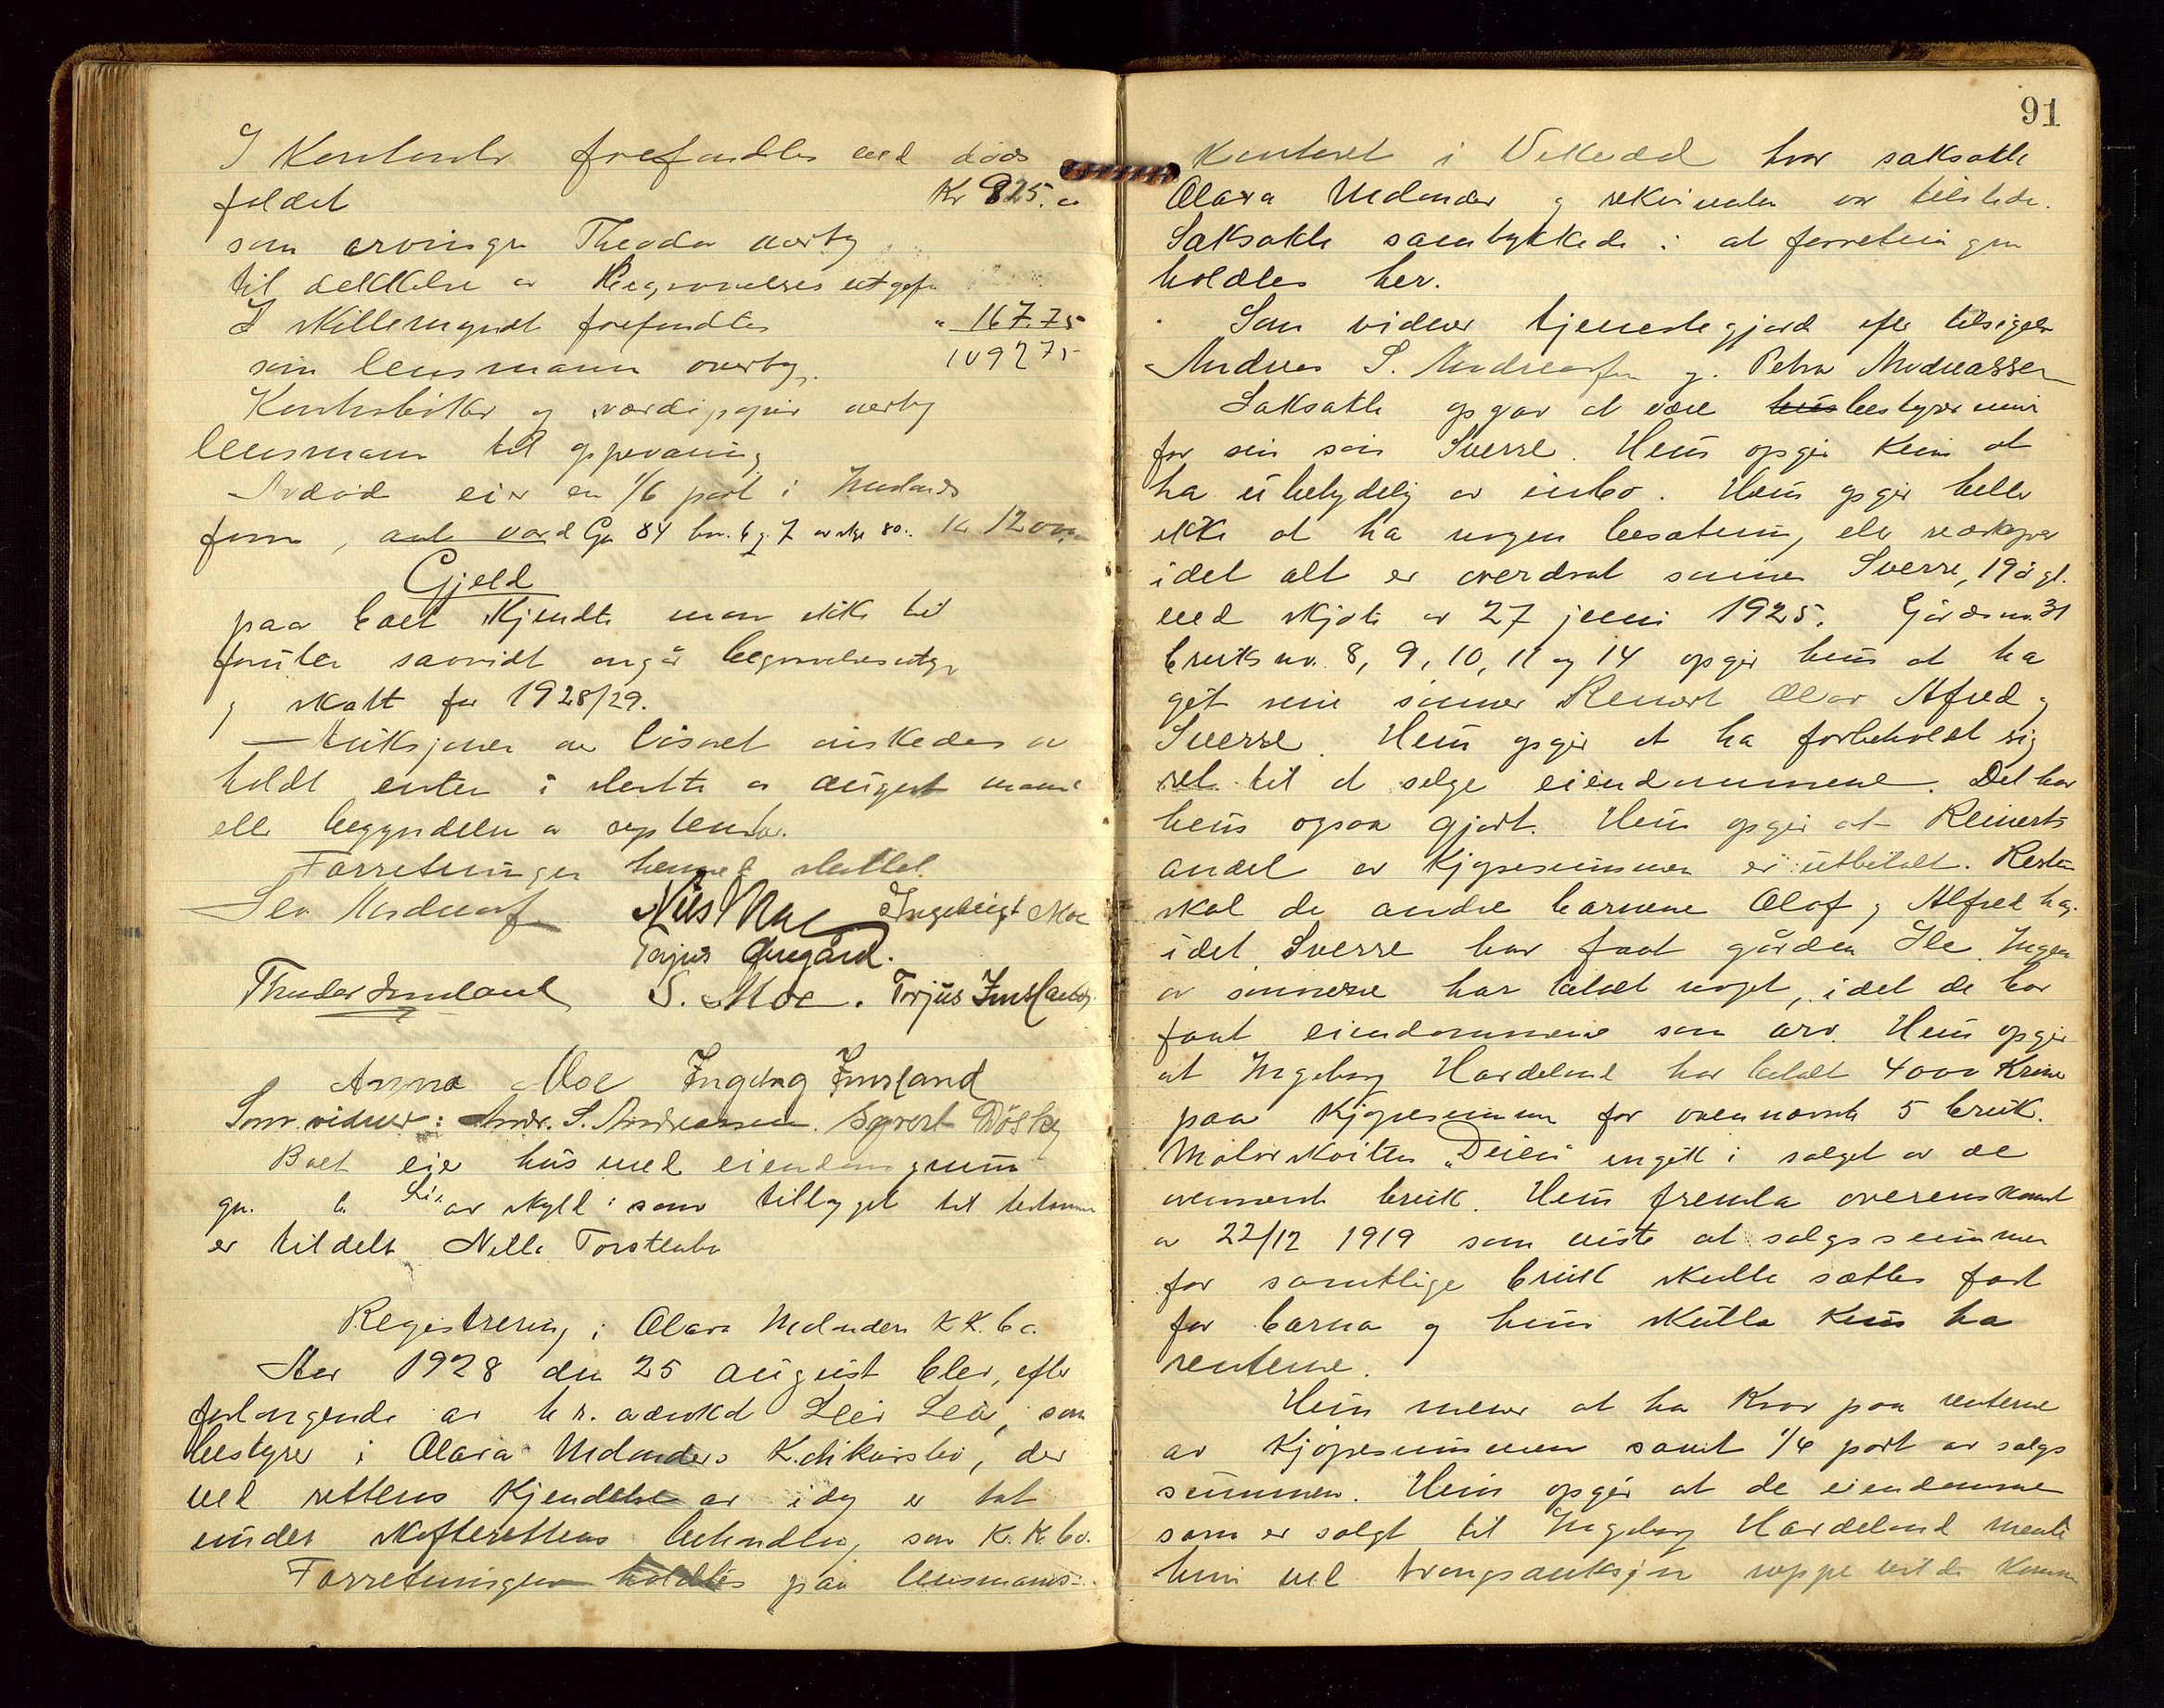 I Kontanter forefandtes ved døds
faldet Kr 925.00
som arvinge Theodor overtog
til dekkelse av Begravelses utgifter
I skillemynt forefandtes " 167.75
som lensmann overtog. 1092 75
Kontrabøker og værdipapir overtog
lensmann til oppevaring
Avdød eier en 1/6 part i Imslands
Gn 84 bnr. 6 og 7 av skyl 80. Kr 1200,
Gjeld
paa boet kjendte man ikke til
foruten saavidt angår begravelsesutgr
og skatt for 1928/29.
Auksjonen over løsøret ønskedes av
holdt enten i slutten av august mand
eller begyndelsen av september.
Forretningen hermed sluttet.
Nils Moe Ingebrigt Moe
Torjus
Theodor Imsland S. Moe. Torjus Imsland
Anna Moe Ingeborg Imsland
Som vidner: Andr. S. Andreassen. Syvert
Boet eier hus med eiendoms grunn
gn. b. av skyld: som tillegget til testamen
er tildelt Nelle
Registrering i Olava Mælanders K.K. bo.
Aar 1928 den 25 august blev, efter
forlangende av h.r. advokat Leir Lea, som
bestyrer i Olava Mælanders K.chkursbo, der
ved rettens kjendelse av idag er tat
under skifterettens behandling som K.K. bo.
Forretningen holdtes paa lensmans-
91
kontoret i Vikedal hvor saksøkte
Olava Mælander og rekvirenten var tilstede.
Saksøkte samtykkede i at forretningen
holdtes her.
Som vidner tjenestegjord efter tilsigelse
Andreas S. Andreassen og Petra Andreassen
Saksøkte opgav at være hus bestyrerinne
for sin søn Sverre. Hun opgir kun at
ha ubetydelig av inbo. Hun opgir heller
ikke at ha nogen besætning eller redskaper
idet alt er overdrat sønnen Sverre, 19 år gl.
ved skjøte av 27 juni 1925. Gårdsnr. 31
bruksnr. 8, 9, 10, 11 og 14 opgir hun at ha
git sine sønner Reinert Olav Alfred og
Sverre. Hun opgir at ha forbeholdt sig
ret til at selge eiendommene. Det har
hun ogsaa gjort. Hun opgir at Reinerts
andel av kjøpesummen er utbetalt. Resten
skal de andre barnene Olaf og Alfred ha,
idet Sverre har faat gården Ile. Ingen
av sønnerne har betalt noget, idet de har
faat eiendommene som arv. Hun opgir
at Ingeborg Hardeland har betalt 4000 Kroner
paa kjøpesummen for ovennævnte 5 bruk.
Motorskøiten "Deien" ingikk i salget av de
ovennevnte bruk. Hun fremla overenskomst
av 22/12 1919 som viste at salgssummen
for samtlige bruk skulle sættes fast
for barna og hun skulle kun ha
renterne.
Hun mener at ha krav paa renterne
av kjøpesummen samt 1/6 part av salgs
summen. Hun opgir at de eiendomme
som er solgt til Ingeborg Hardeland mente
hun ved tvangsauksjon neppe vilde komme